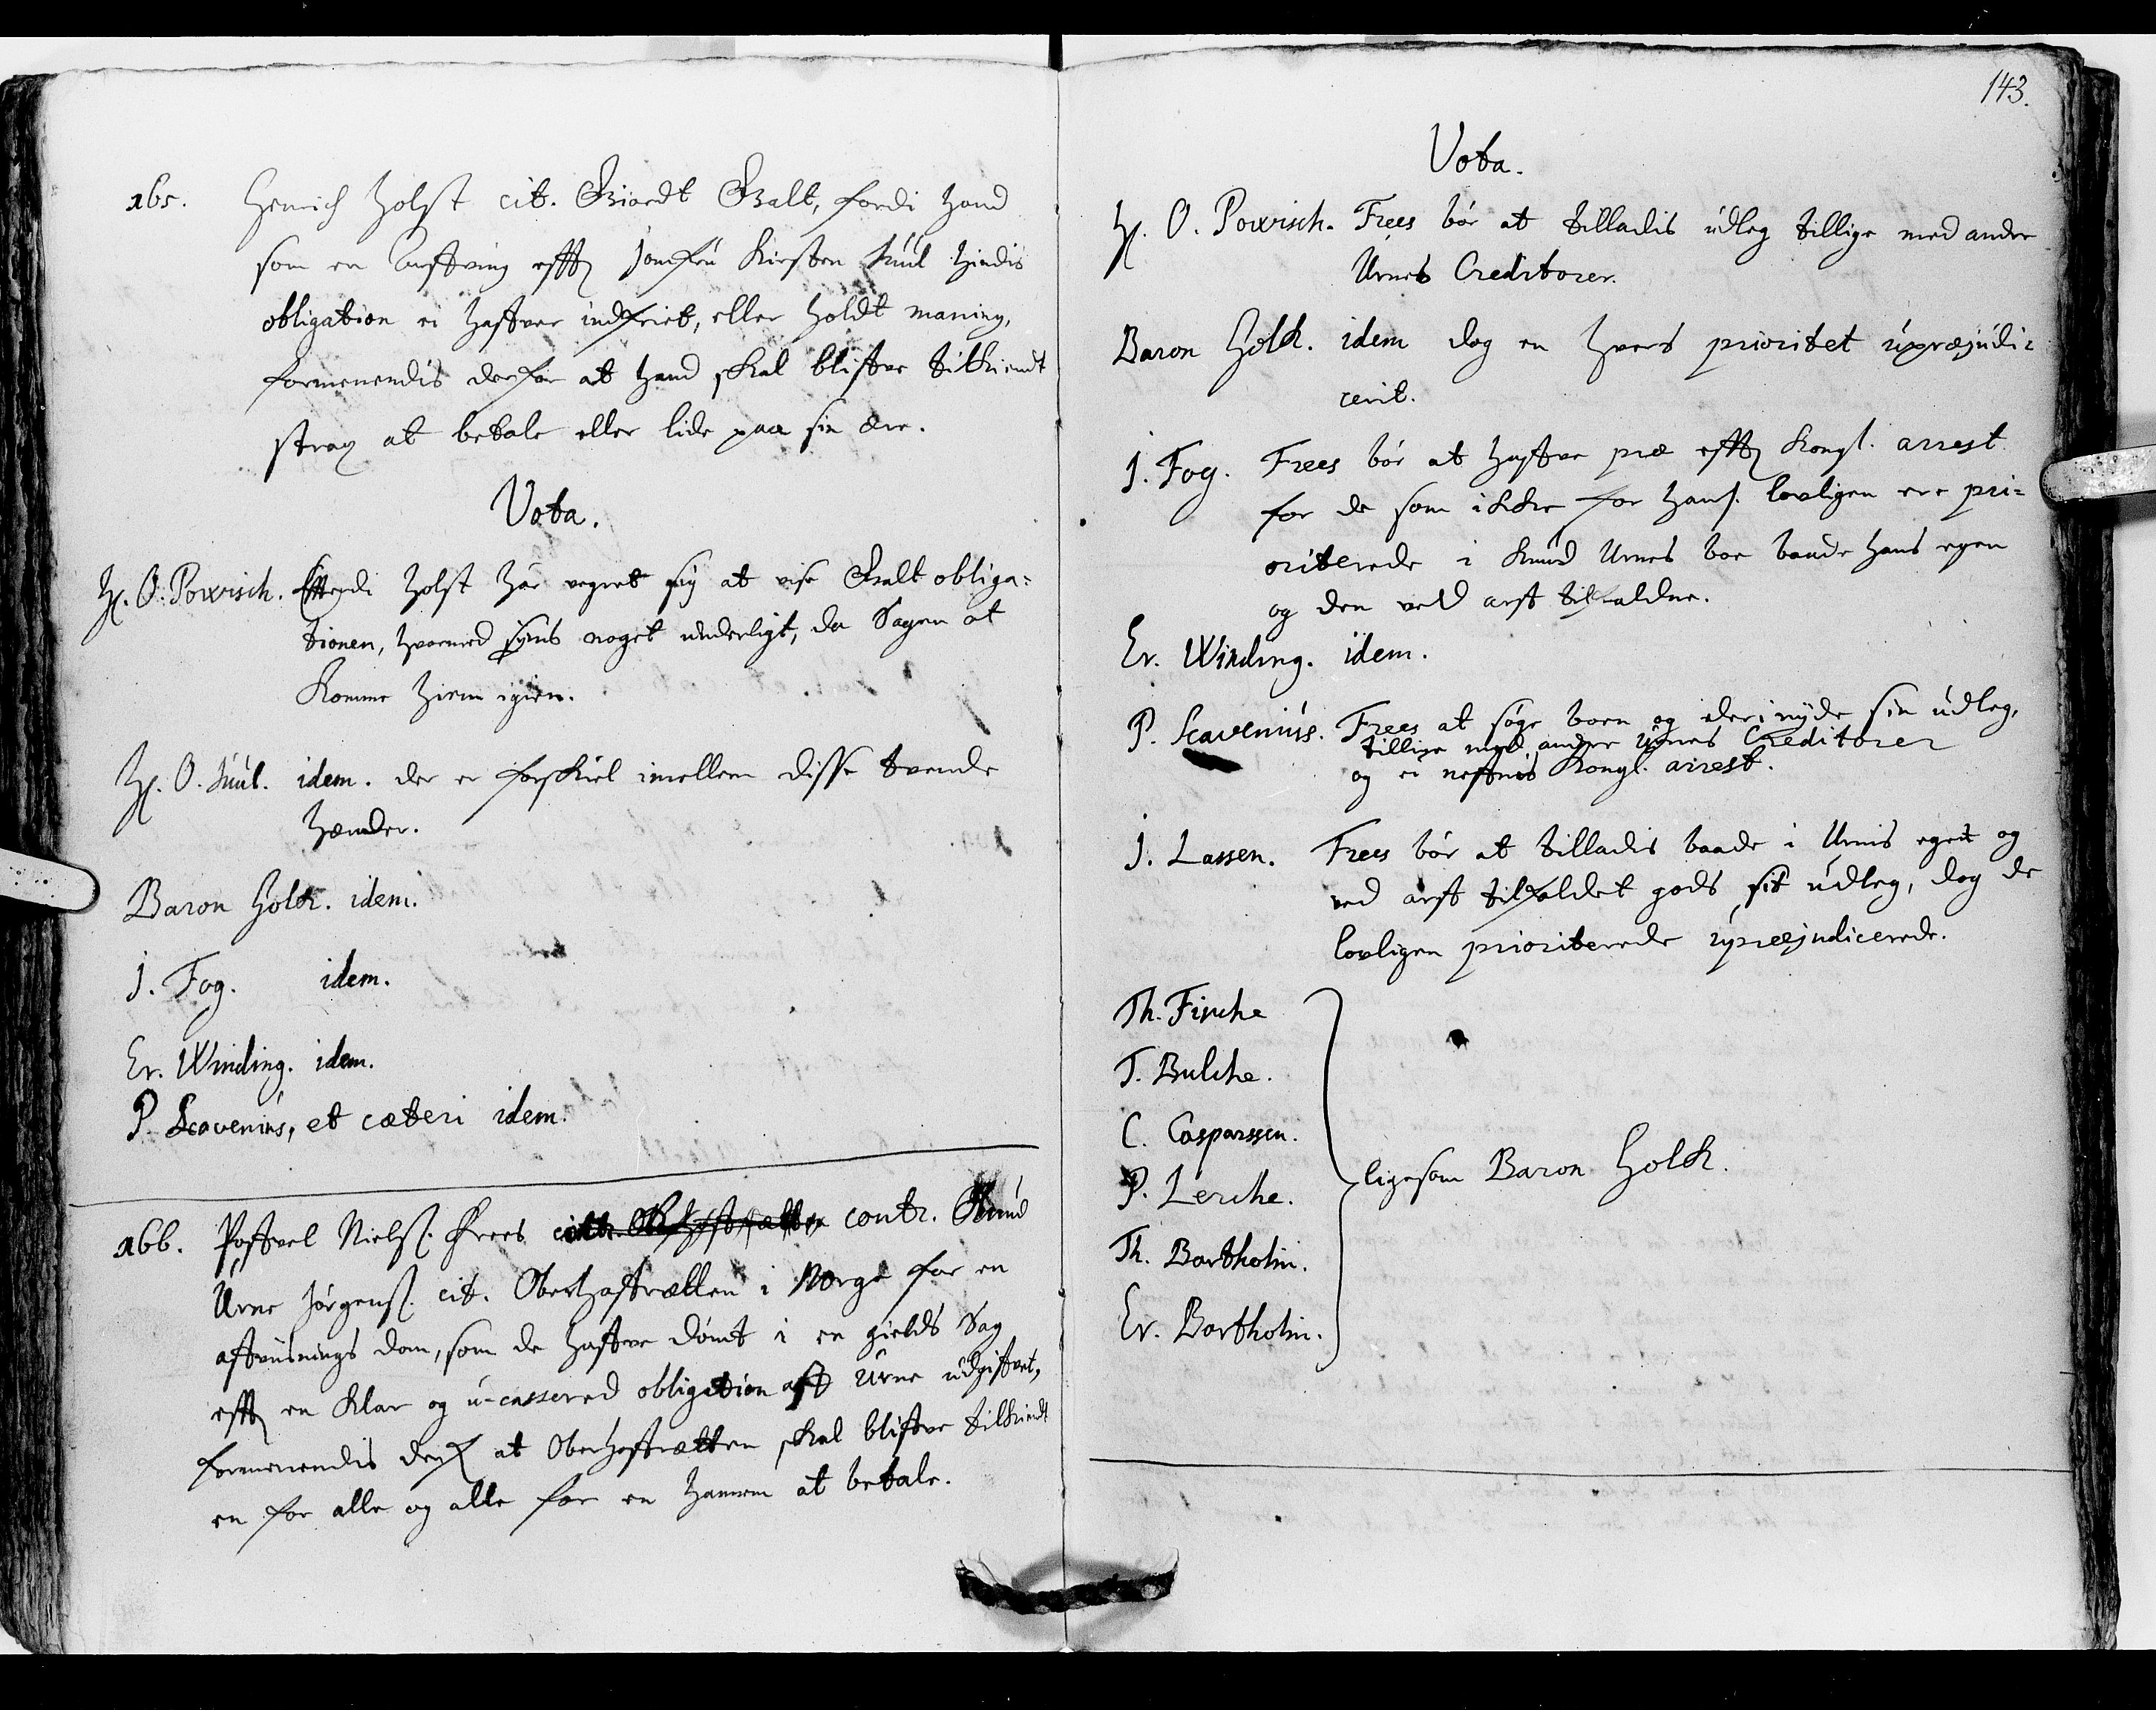 165. Henrich Holst cit. Giordt Galt, fordi hand
som en arfving efft Jomfru Kirsten Juul hindis
obligation ei hafver indfriet, eller holdt maning,
formenendis derfor at hand skal blifve tilkiendt
strax at betale eller lide paa sin ære.
Vota.
H. O. Powisch. Efterdi Holst har vegret sig at vise Galt obliga-
tionen, hvormed synis noget underligt, da Sagen at
komme hiem igien.
H. O. Juul. idem. der er forskiel imellem disse tvende
hænder.
Baron Holk. idem.
J. Fog. idem.
Er. Winding. idem.
P. Scavenius, et cæteri idem.
166. Postvel Nielss. Frees contr. Knud
Urne Jørgenss. cit. Oberhofretten i Norge for en
afviisnings dom, som de hafve dømt i en gields Sag
efft en klar og u-cassered obligation aff Urne udgifvet,
formenendis derfor at Oberhofretten skal blifve tilkiendt
en for alle og alle for en hannem at betale.
143.
Vota.
H. O. Powisch. Frees bør at tilladis udleg tillige med andre
Urnes Creditorer.
Baron Holk. idem dog en hvers prioritet upræjudi-
cerit.
J. Fog. Frees bør at hafve præ efft Kongl. arrest
for de som ikke for hans lovligen ere pri-
oriterede i Knud Urnes boe baade hans egen
og den ved arf tilfaldne.
Er. Winding. idem.
P. Scavenius. Frees at søge boen og deri nyde sin udleg,
tillige med andre Urnes Creditorer
og ei nefnis Kongl. arrest.
J. Lassen. Frees bør at tilladis baade i Urnis eget og
ved arf tilfaldet gods sit udleg, dog de
lovligen prioriterede upræjudicerede.
Th. Fincke
T. Bulche.
C. Casparssen.
P. Lerche.
ligesom Baron Holk.
Th. Bartholin.
Er. Bartholin.